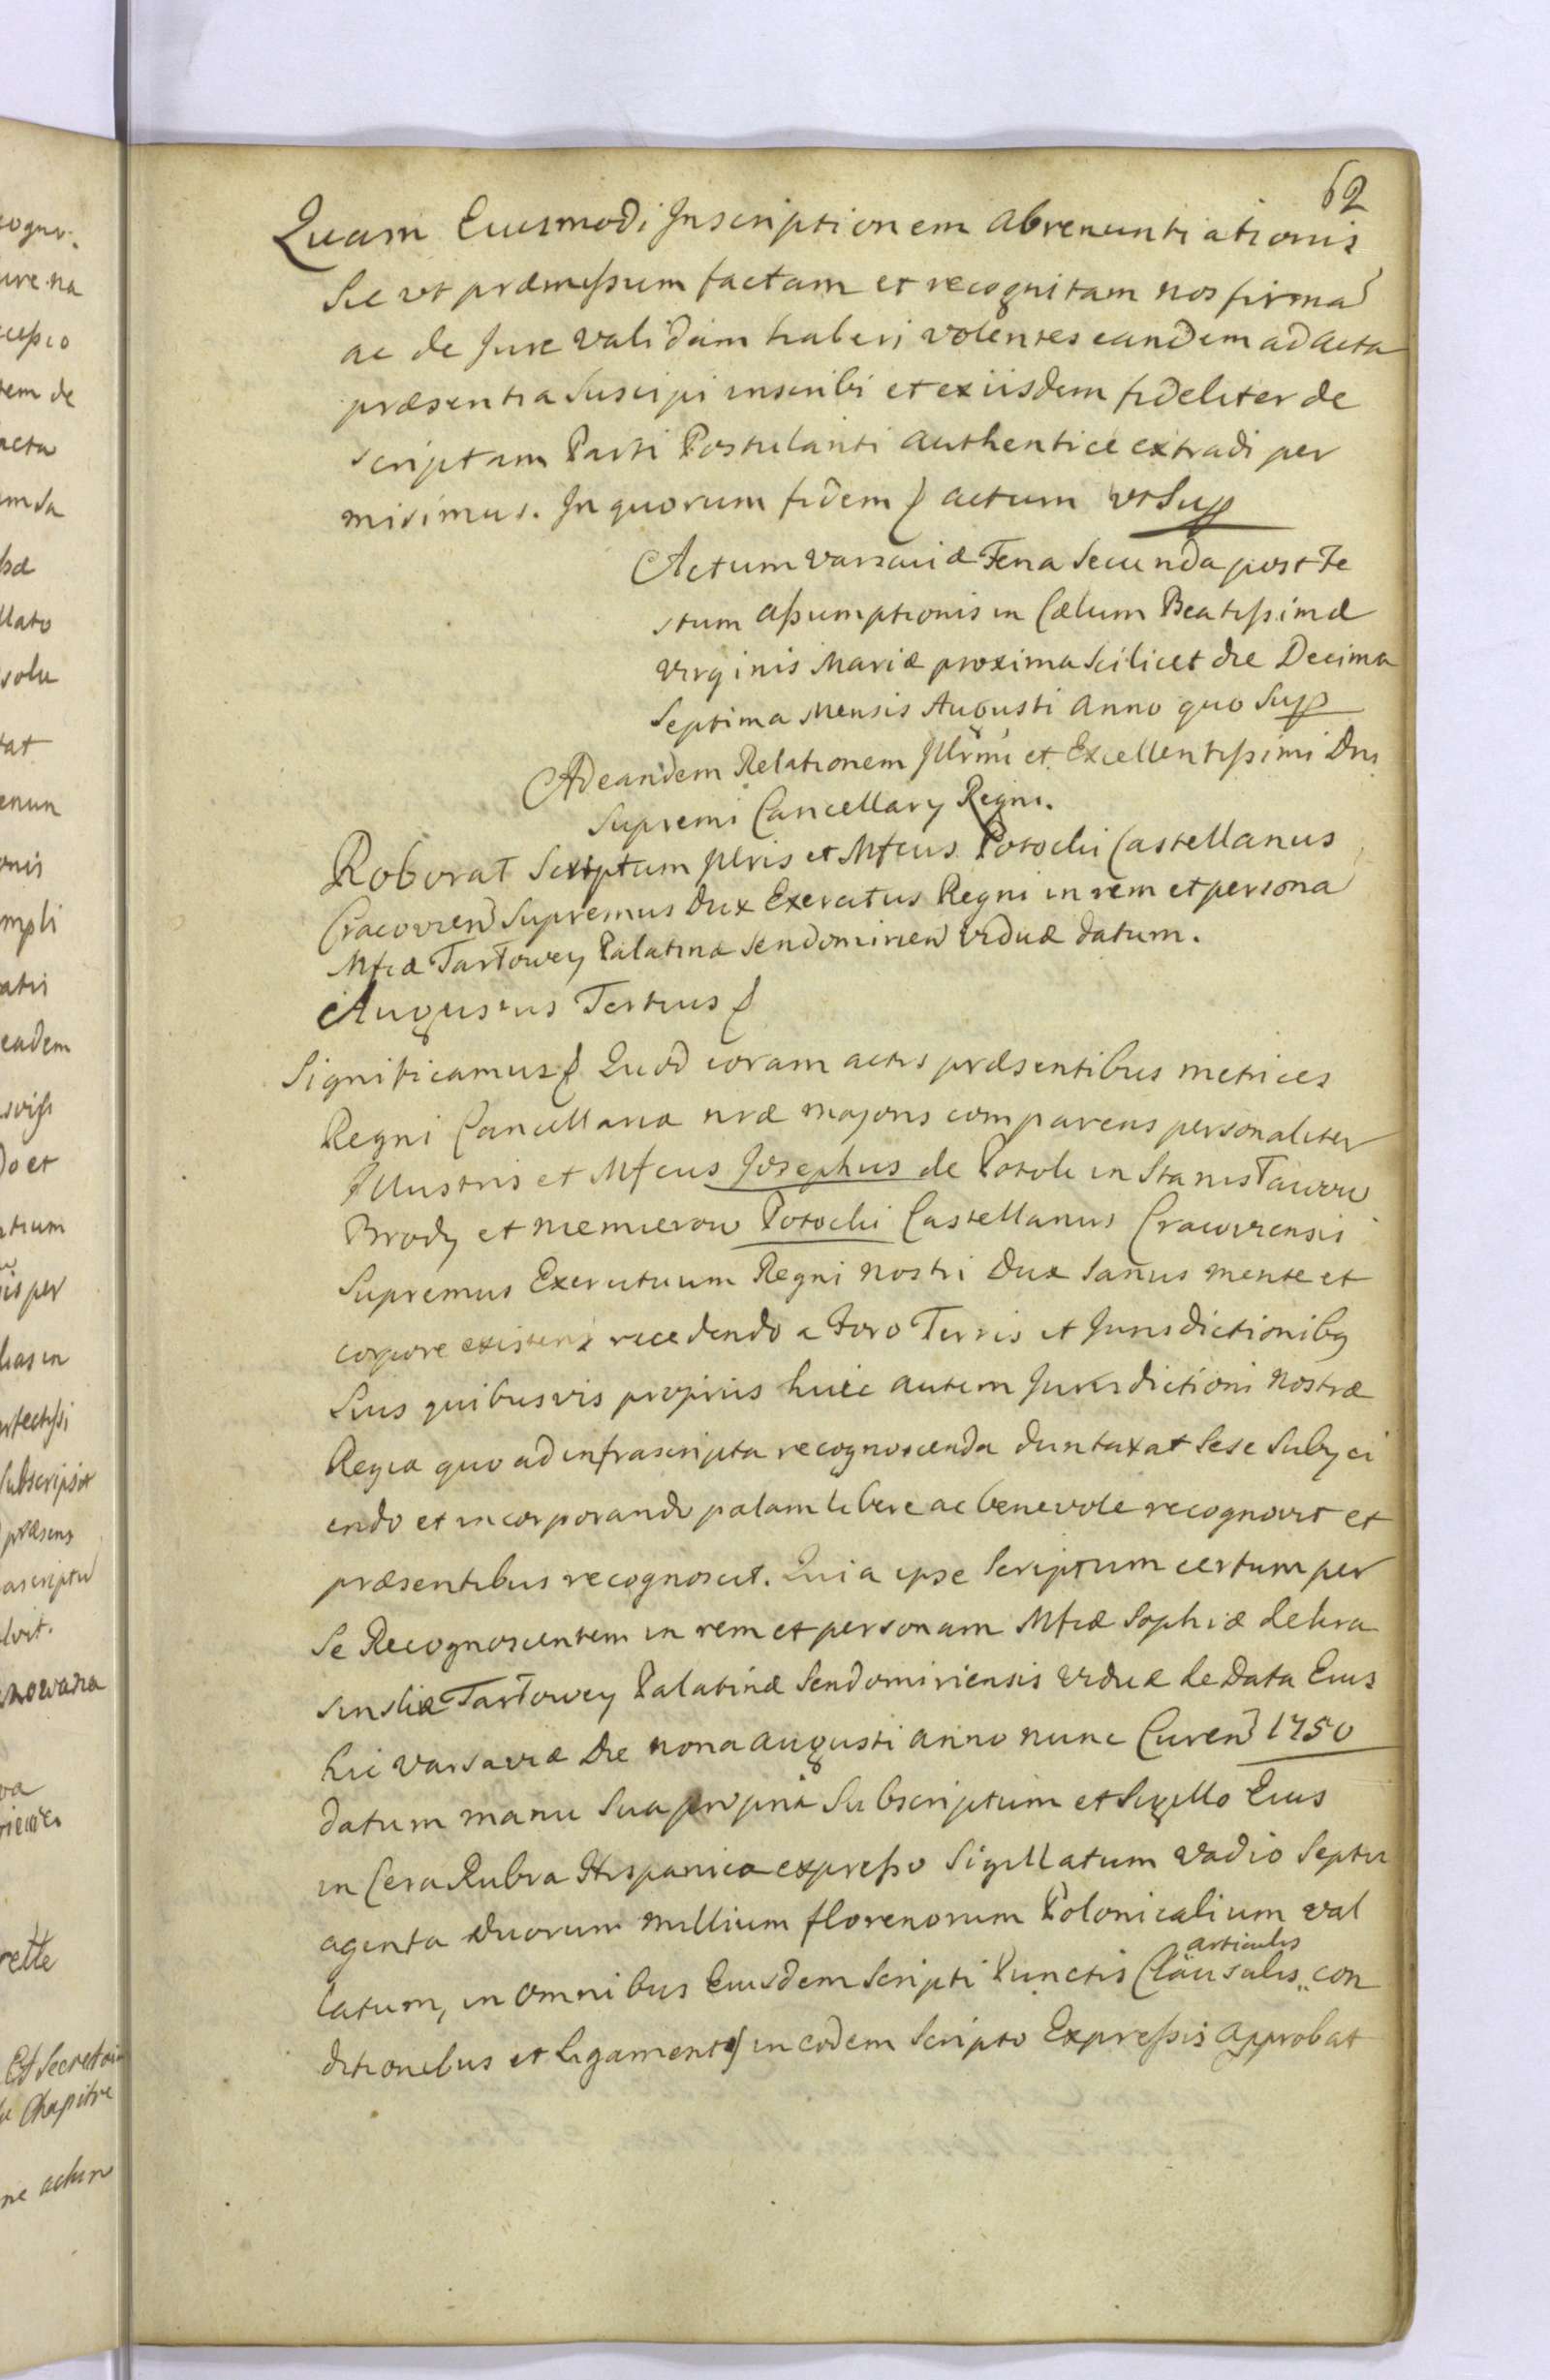 62
Quam Eiusmodi Inscriptionem abrenuntiationis
Sic ut præmissum factam et recognitam nos firma
ac de Jure validam haberi volentes eandem ad acta
præsentia Suscipi inscribi et ex iisdem fideliter de
scriptam Parti Postulanti authentice extradi per
misimus. In quorum fidem actum ut Sup
Actum Varsaviæ Feria Secunda post Fe
stum Assumptionis in Cælum Beatissimæ
Virginis Mariæ proxima Scilicet die Decima
Septima Mensis Augusti Anno quo Sup
Ad eandem Relationem Illrmi et Excellentissimi Dni
Supremi Cancellary Regni.
Roborat Scriptum Illris et Mfcus Potocki Castellanus
Cracovien Supremus Dux Exercitus Regni in rem et persona
Mfcæ Tarłowey Palatinæ Sendomirien Viduæ datum.
Augustus Tertius
Significamus Quod coram actis præsentibus metrices
Regni Cancellariæ nræ majoris comparens personaliter
Illustris et Mfcus Josephus de Potok in Stanisławow
Brody et Niemierow Potocki Castellanus Cracoviensis
Supremus Exercituum Regni nostri Dux Sanus mente et
corpore existens recedendo a Foro Terris et Jurisdictionibq
Suis quibusvis propriis huic autem Jurisdictioni Nostræ
Regia quo ad infrascripta recognoscenda duntaxat Sese Subyci
endo et incorporando palam libere ac benevole recognovit et
præsentibus recognoscit. Quia ipse Scriptum certum per
Se Recognoscentem in rem et personam Mfcæ Sophiæ de Kra
sinskie Tarłowey Palatinæ Sendomiriensis Viduæ de Data Eius
hic Varsaviæ Die nona augusti anno nunc Curen 1750
datum manu Sua propria Subscriptum et Sigillo Eius
in Cera Rubra Hispanica expresso Sigillatum Vadio Septu
aginta Duorum Millium florenorum Polonicalium val
latum, in omnibus Eiusdem Scripti Punctis Clausulis articulis con
ditionibus et Ligamentis in eodem Scripto Expressis approbat